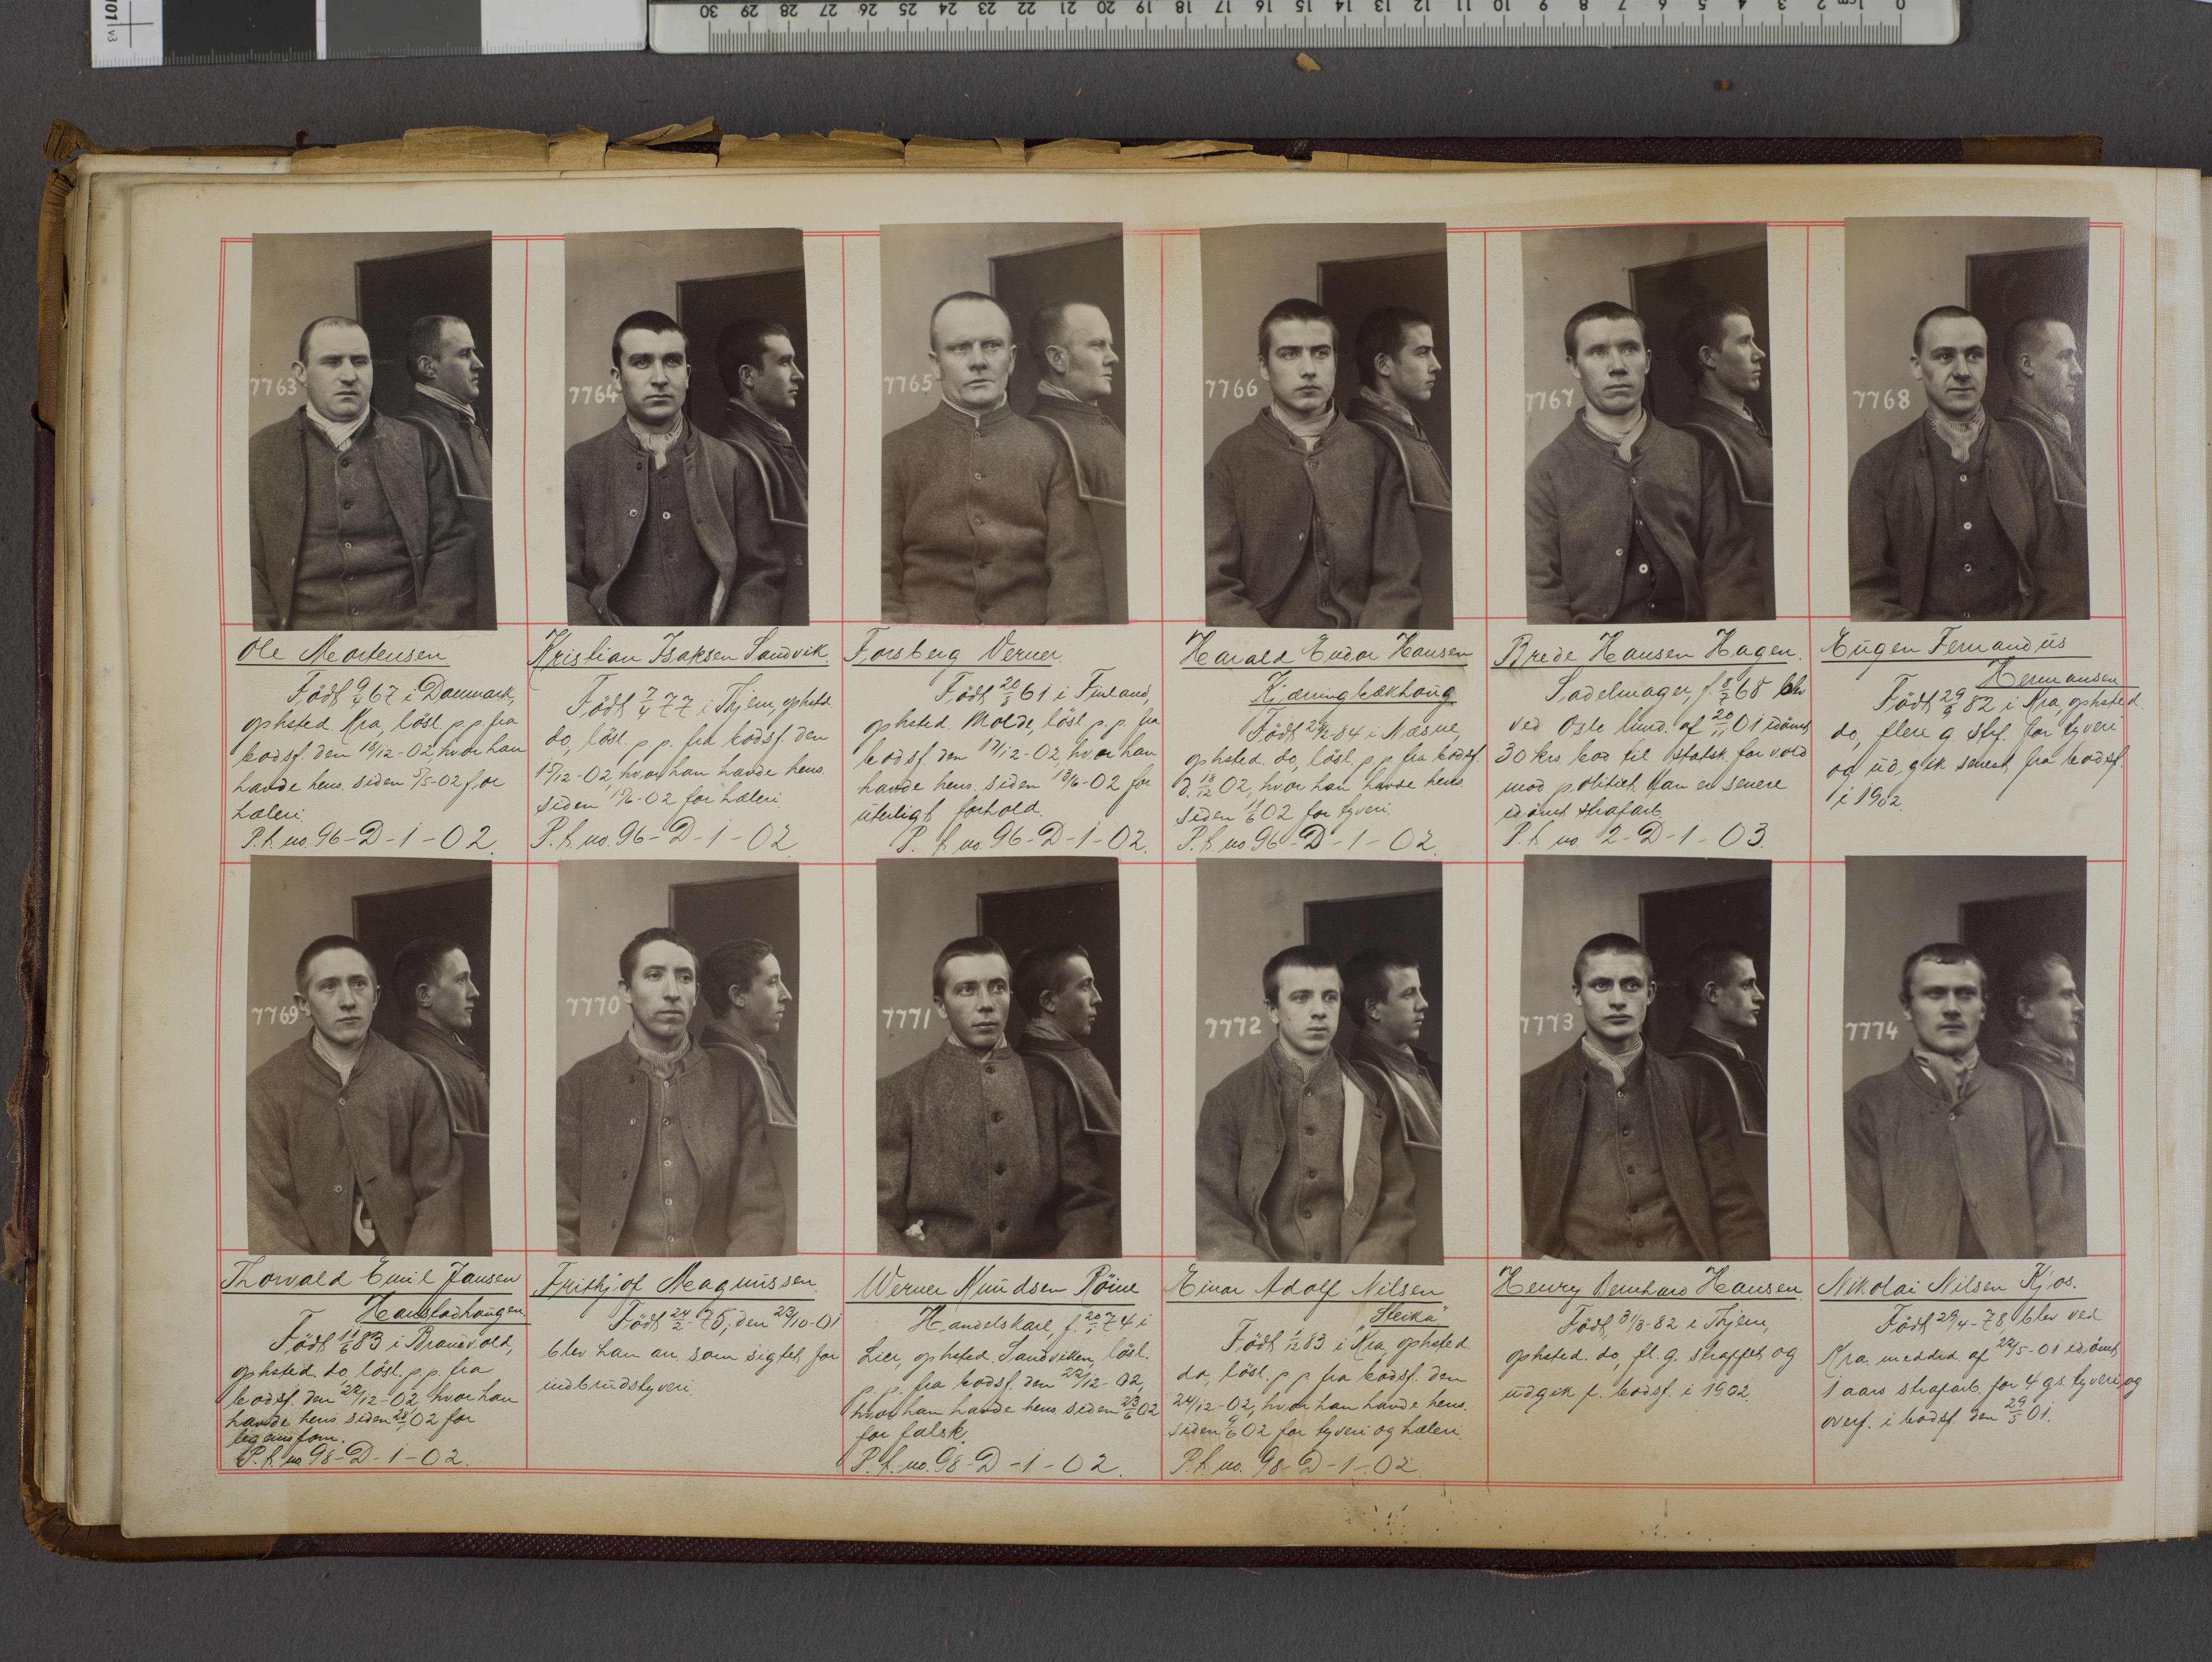 30 29 28 27 26 25 24 23 22 21 20 19 18 17 16 15 14 13 12 11 10 9 8 7 6 5 4 3 2 1cm 0
7763
Ole Mortensen
Födt 9/4 67 i Danmark,
ophsted. Kra, lösl. p. p. fra
bodsf. den 18/12-02, hvor han
havde hens. siden 5/5-02 for
hæleri.
P. f. no. 96-D-1-02.
7764
Kristian Isaksen Sandvik.
Födt 7/4 77 i Thjem, ophsted.
do, lösl. p. p. fra bodsf. den
15/12-02, hvor han havde hens.
siden 15/6-02 for hæleri.
P. f. no. 96-D-1-02
7765
Forsberg Verner.
Födt 20/3 61 i Finland,
ophsted. Molde, lösl. p. p. fra
bodsf. den 17/12-02, hvor han
havde hens. siden 13/6-02 for
üterligt forhold.
P. f. no. 96-D-1-02.
7766
Harald Eudor Hansen
Kjærringbækhaug
Födt 84 i Næsne,
ophsted. do, lösl. p. p. fra bodsf.
d. 18/12 02, hvor han havde hens.
siden 11/6 02 for tyveri.
P. f. no. 96-D-1-02.
7767
Brede Hansen Hagen.
Sadelmager, f. 8/2 68 blev
ved Oslo lund. af 20/11 01 idömt
30 krs. bod til statsk. for vold
mod politiet. Han er senere
idömt strafarb.
P. f. no. 2-D-1-03.
7768
Eügen Fernandüs
Hermansen
Födt 29/9 82 i Kra, ophsted.
do, flere g. strf. for tyveri
og üdgik senest fra bodsf.
i 1902.
7769
Thorvald Emil Jansen
Haustadhaugen.
Födt 11/6 83 i Brandvold,
ophsted. do, lösl. p. p. fra
bodsf. den 22/12-02, hvor han
havde hens. siden 02 for
legemsforn.
P. f. no 98-D-1-02.
7770
Frithjof Magnüssen.
Födt 24/2-75, den 23/10-01
blev han an. som sigtet for
indbrüdstyveri.
7771
Werner Knüdsen Röine
Handelskarl, f. 20/1 74 i
Lier, ophsted. Sandviken, lösl.
p. p. fra bodsf. den 22/12-02,
hvor han havde hens. siden 23/6 02
for falsk.
P. f. no. 98-D-1-02.
7772
Einar Adolf Nilsen
"Steika"
Födt 1/12 83 i Kra, ophsted.
do, lösl. p. p. fra bodsf. den
24/12-02, hvor han havde hens.
siden 9/6 02 for tyveri og hæleri.
P. f. no. 98-D-1-02.
7773
Henry Bernhard Hansen.
Födt 31/3-82 i Thjem,
ophsted. do, fl. g. straffet og
üdgik f. bodsf. i 1902.
7774
Nikolai Nilsen Kjos.
Födt 29/4-78, blev ved
Kra. meddrd. af 22/5-01 idömt
1 aars strafarb. for 4 gs. tyveri, og
overf. i bodsf. den 29/5 01.